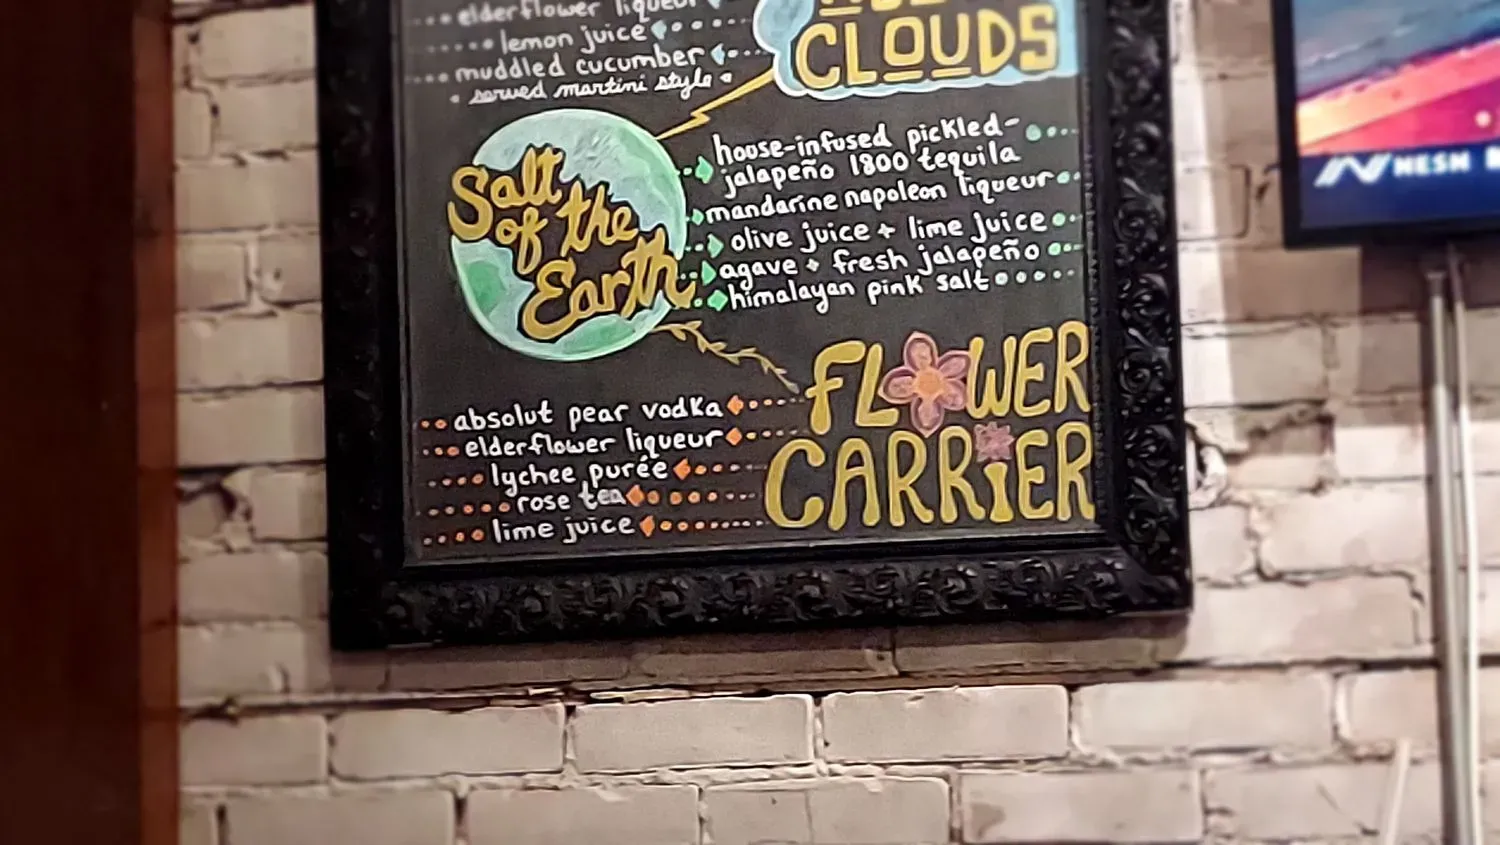 elderflower liqueur
lemon juice
muddled cucumber
served martini style
CLOUDS
Salt
of the
Earth
house-infused pickled-
jalapeño 1800 tequila
mandarine napoleon liqueur
olive juice + lime juice
agave + fresh jalapeño
himalayan pink salt
FLOWER
CARRiER
absolut pear vodka
elderflower liqueur
lychee purée
rose tea
lime juice
MESH